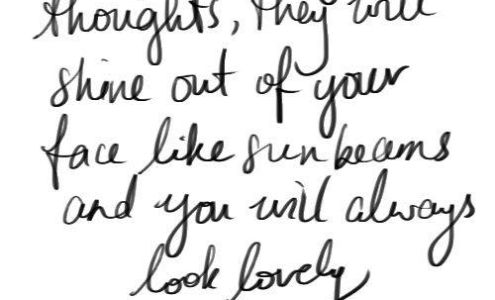 thoughts, they will
shine out of your
face like sunbeams
and you will always
look lovely